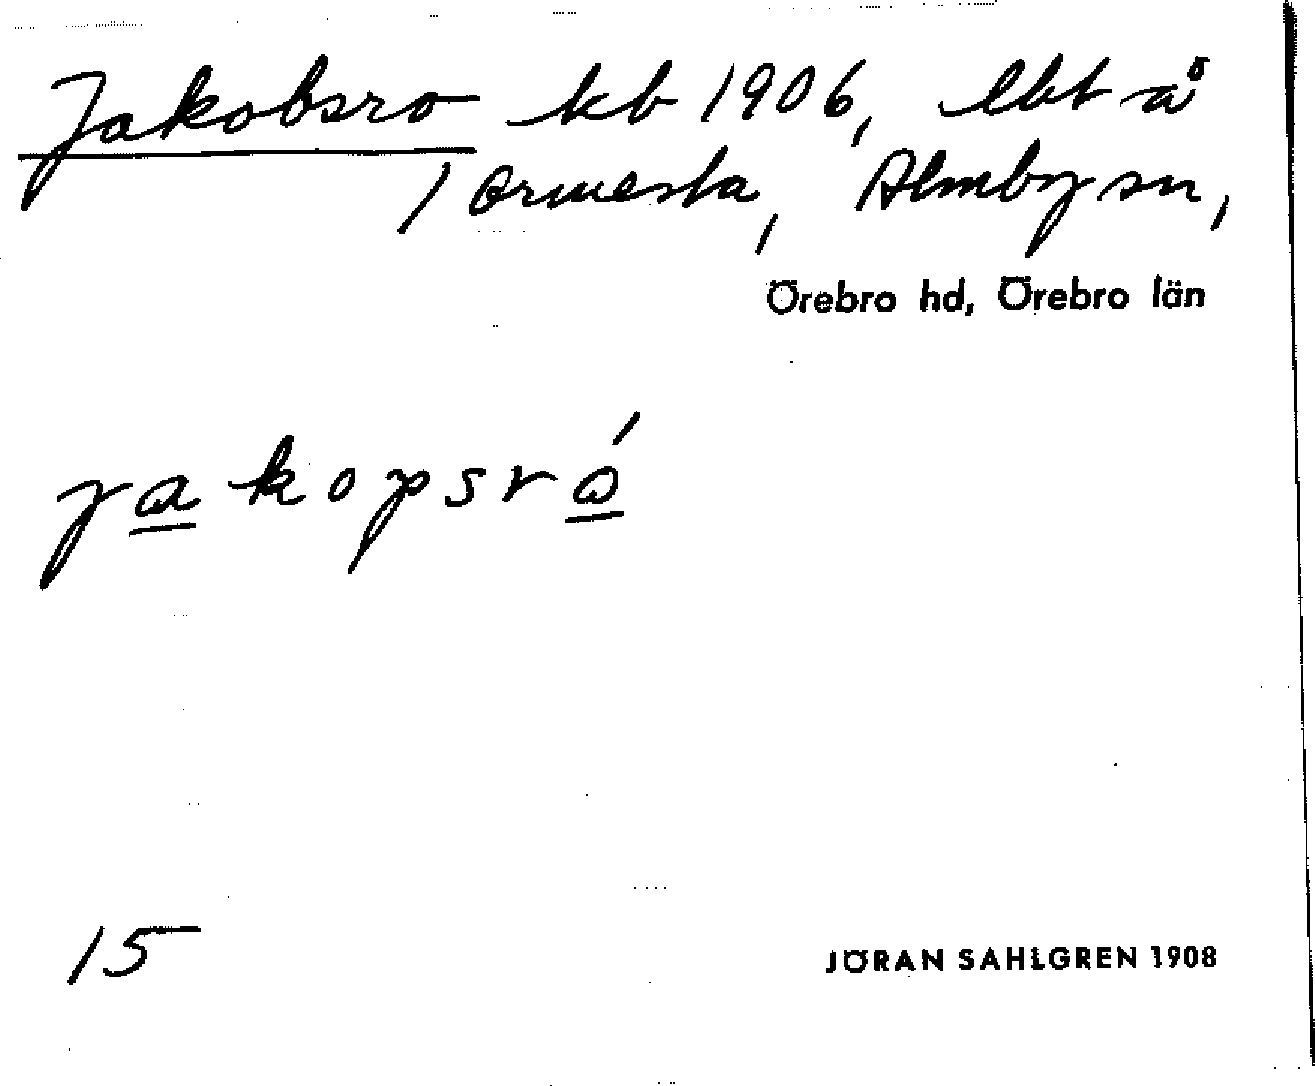 Jakobsro kb 1906, lht å
1 Ormesta, Almby sn,
Örebro hd, Örebro län
jakopsró
15
JÖRAN SAHLGREN 1908